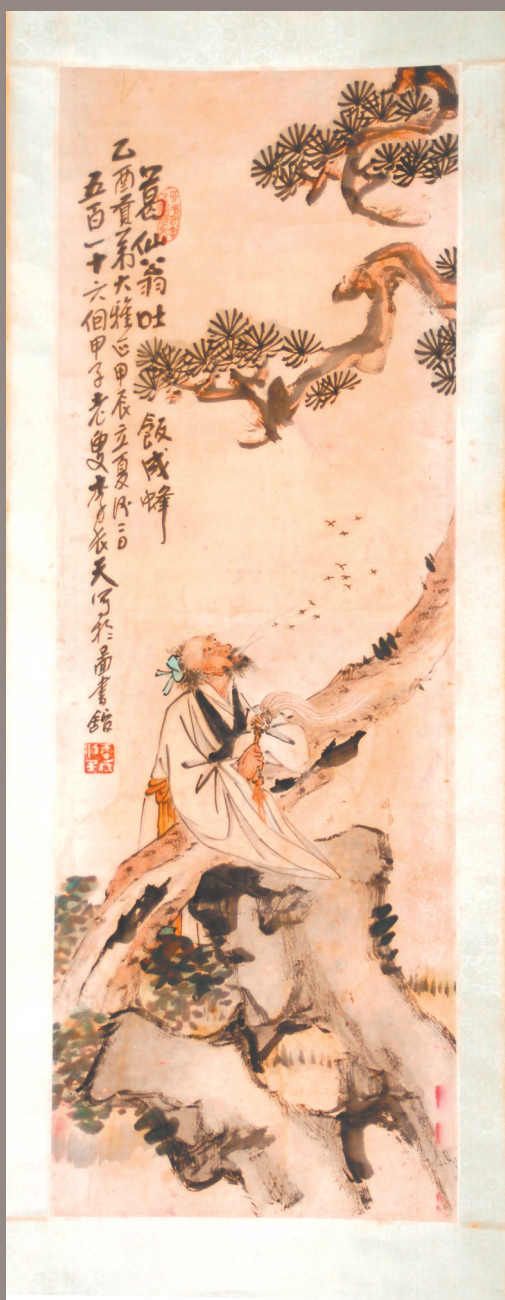 葛仙翁吐飯成蜂
乙酉弟大雅正甲辰立夏後二日
五百一十六個甲子老叟李天写於啚書舘